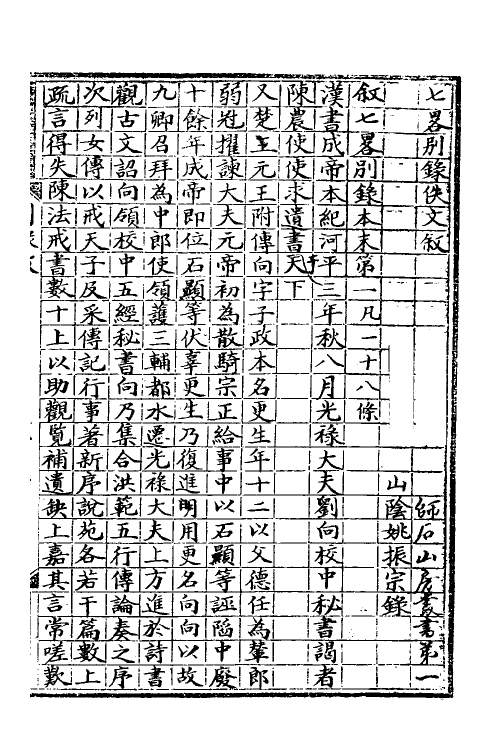 七畧别錄佚文叙
師石山房叢書第一
山陰姚振宗錄
叙七畧别錄本末第一凡一十八條
漢書成帝本紀河平三年秋八月光祿大夫劉向校中秘書謁者
陳農使使求遺書於天下
又楚元王附傳向字子政本名更生年十二以父德任為輦郎
弱冠擢諫大夫元帝初為散騎宗正給事中以石顯等誣陷中廢
十餘年成帝即位石顯等伏辜更生乃復進用更名向向以故
九卿召拜為中郎使領護三輔都水遷光祿大夫上方進於詩書
觀古文詔向領校中五經秘書向乃集合洪範五行傳論奏之序
次列女傳以戒天子及采傳記行事著新序說苑各若干篇數上
疏言得失陳法戒書數十上以助觀覽補遺缺上嘉其言常嗟歎